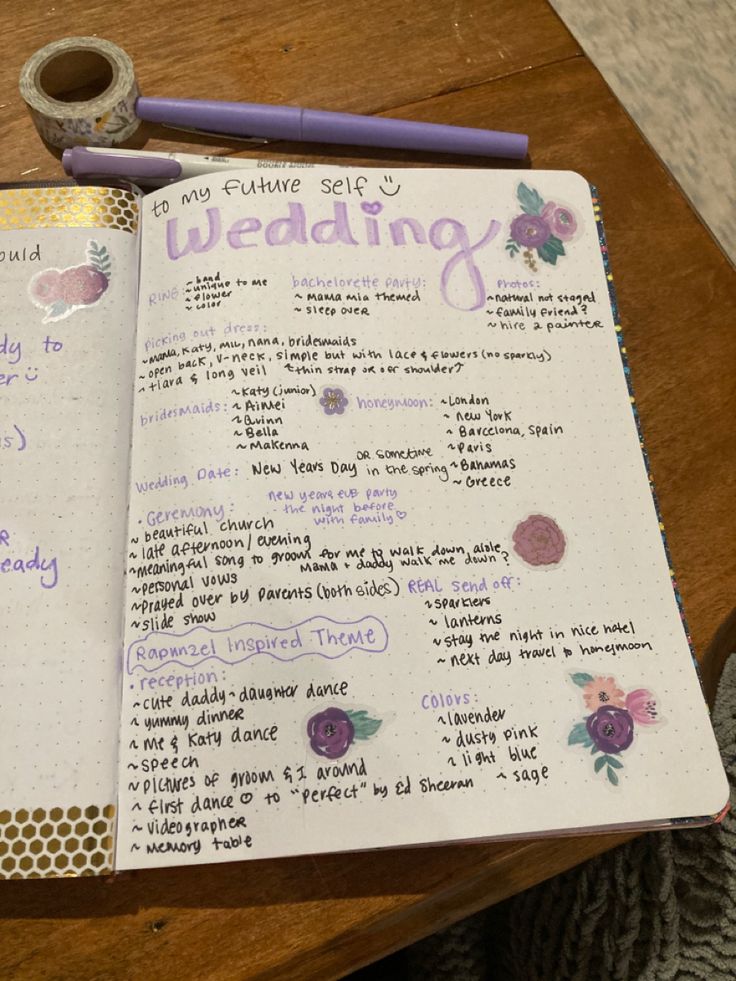 ould
dy to
er ᵕ̈
s)
R
eady
to my future self ᵕ̈
Wedding
RING: ~ band
~ unique to me
~ flower
~ color
bachelorette party:
~ mama mia themed
~ sleep over
Photos:
~ natural not staged
~ family friend?
~ hire a painter
picking out dress:
~ mama, Katy, MIL, nana, bridesmaids
~ open back, v-neck, simple but with lace & flowers (no sparkly)
~ tiara & long veil ↑ thin strap or off shoulder ↑
bridesmaids: ~ Katy (junior)
~ Aimei
~ Quinn
~ Bella
~ Makenna
honeymoon: ~ London
~ New York
~ Barcelona, Spain
~ Paris
~ Bahamas
~ Greece
Wedding Date: New Years Day OR sometime in the spring
new years eve party
- the night before
with family ♡
• Ceremony:
~ beautiful church
~ late afternoon/evening
~ meaningful song to groom for me to walk down, aisle,
mama + daddy walk me down?
~ personal vows
~ prayed over by parents (both sides)
~ slide show
REAL send off:
~ sparklers
~ lanterns
~ stay the night in nice hotel
~ next day travel to honeymoon
Rapunzel Inspired Theme
• reception:
~ cute daddy-daughter dance
~ yummy dinner
~ me & Katy dance
~ speech
~ pictures of groom & I around
~ first dance ☺ to "Perfect" by Ed Sheeran
~ videographer
~ memory table
Colors:
~ lavender
~ dusty pink
~ light blue
~ sage